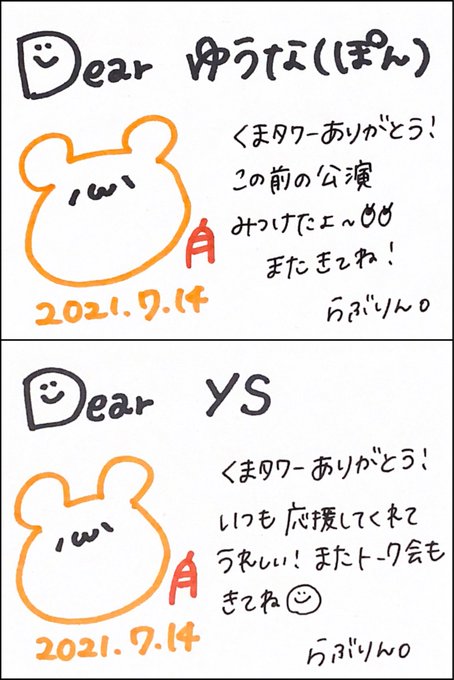 Dear ゆうな(ぽん)
くまタワーありがとう!
この前の公演
みつけたよ〜
またきてね!
2021.7.14
らぶりん。
Dear YS
くまタワーありがとう!
いつも応援してくれて
うれしい!またトーク会も
きてね
2021.7.14
らぶりん。